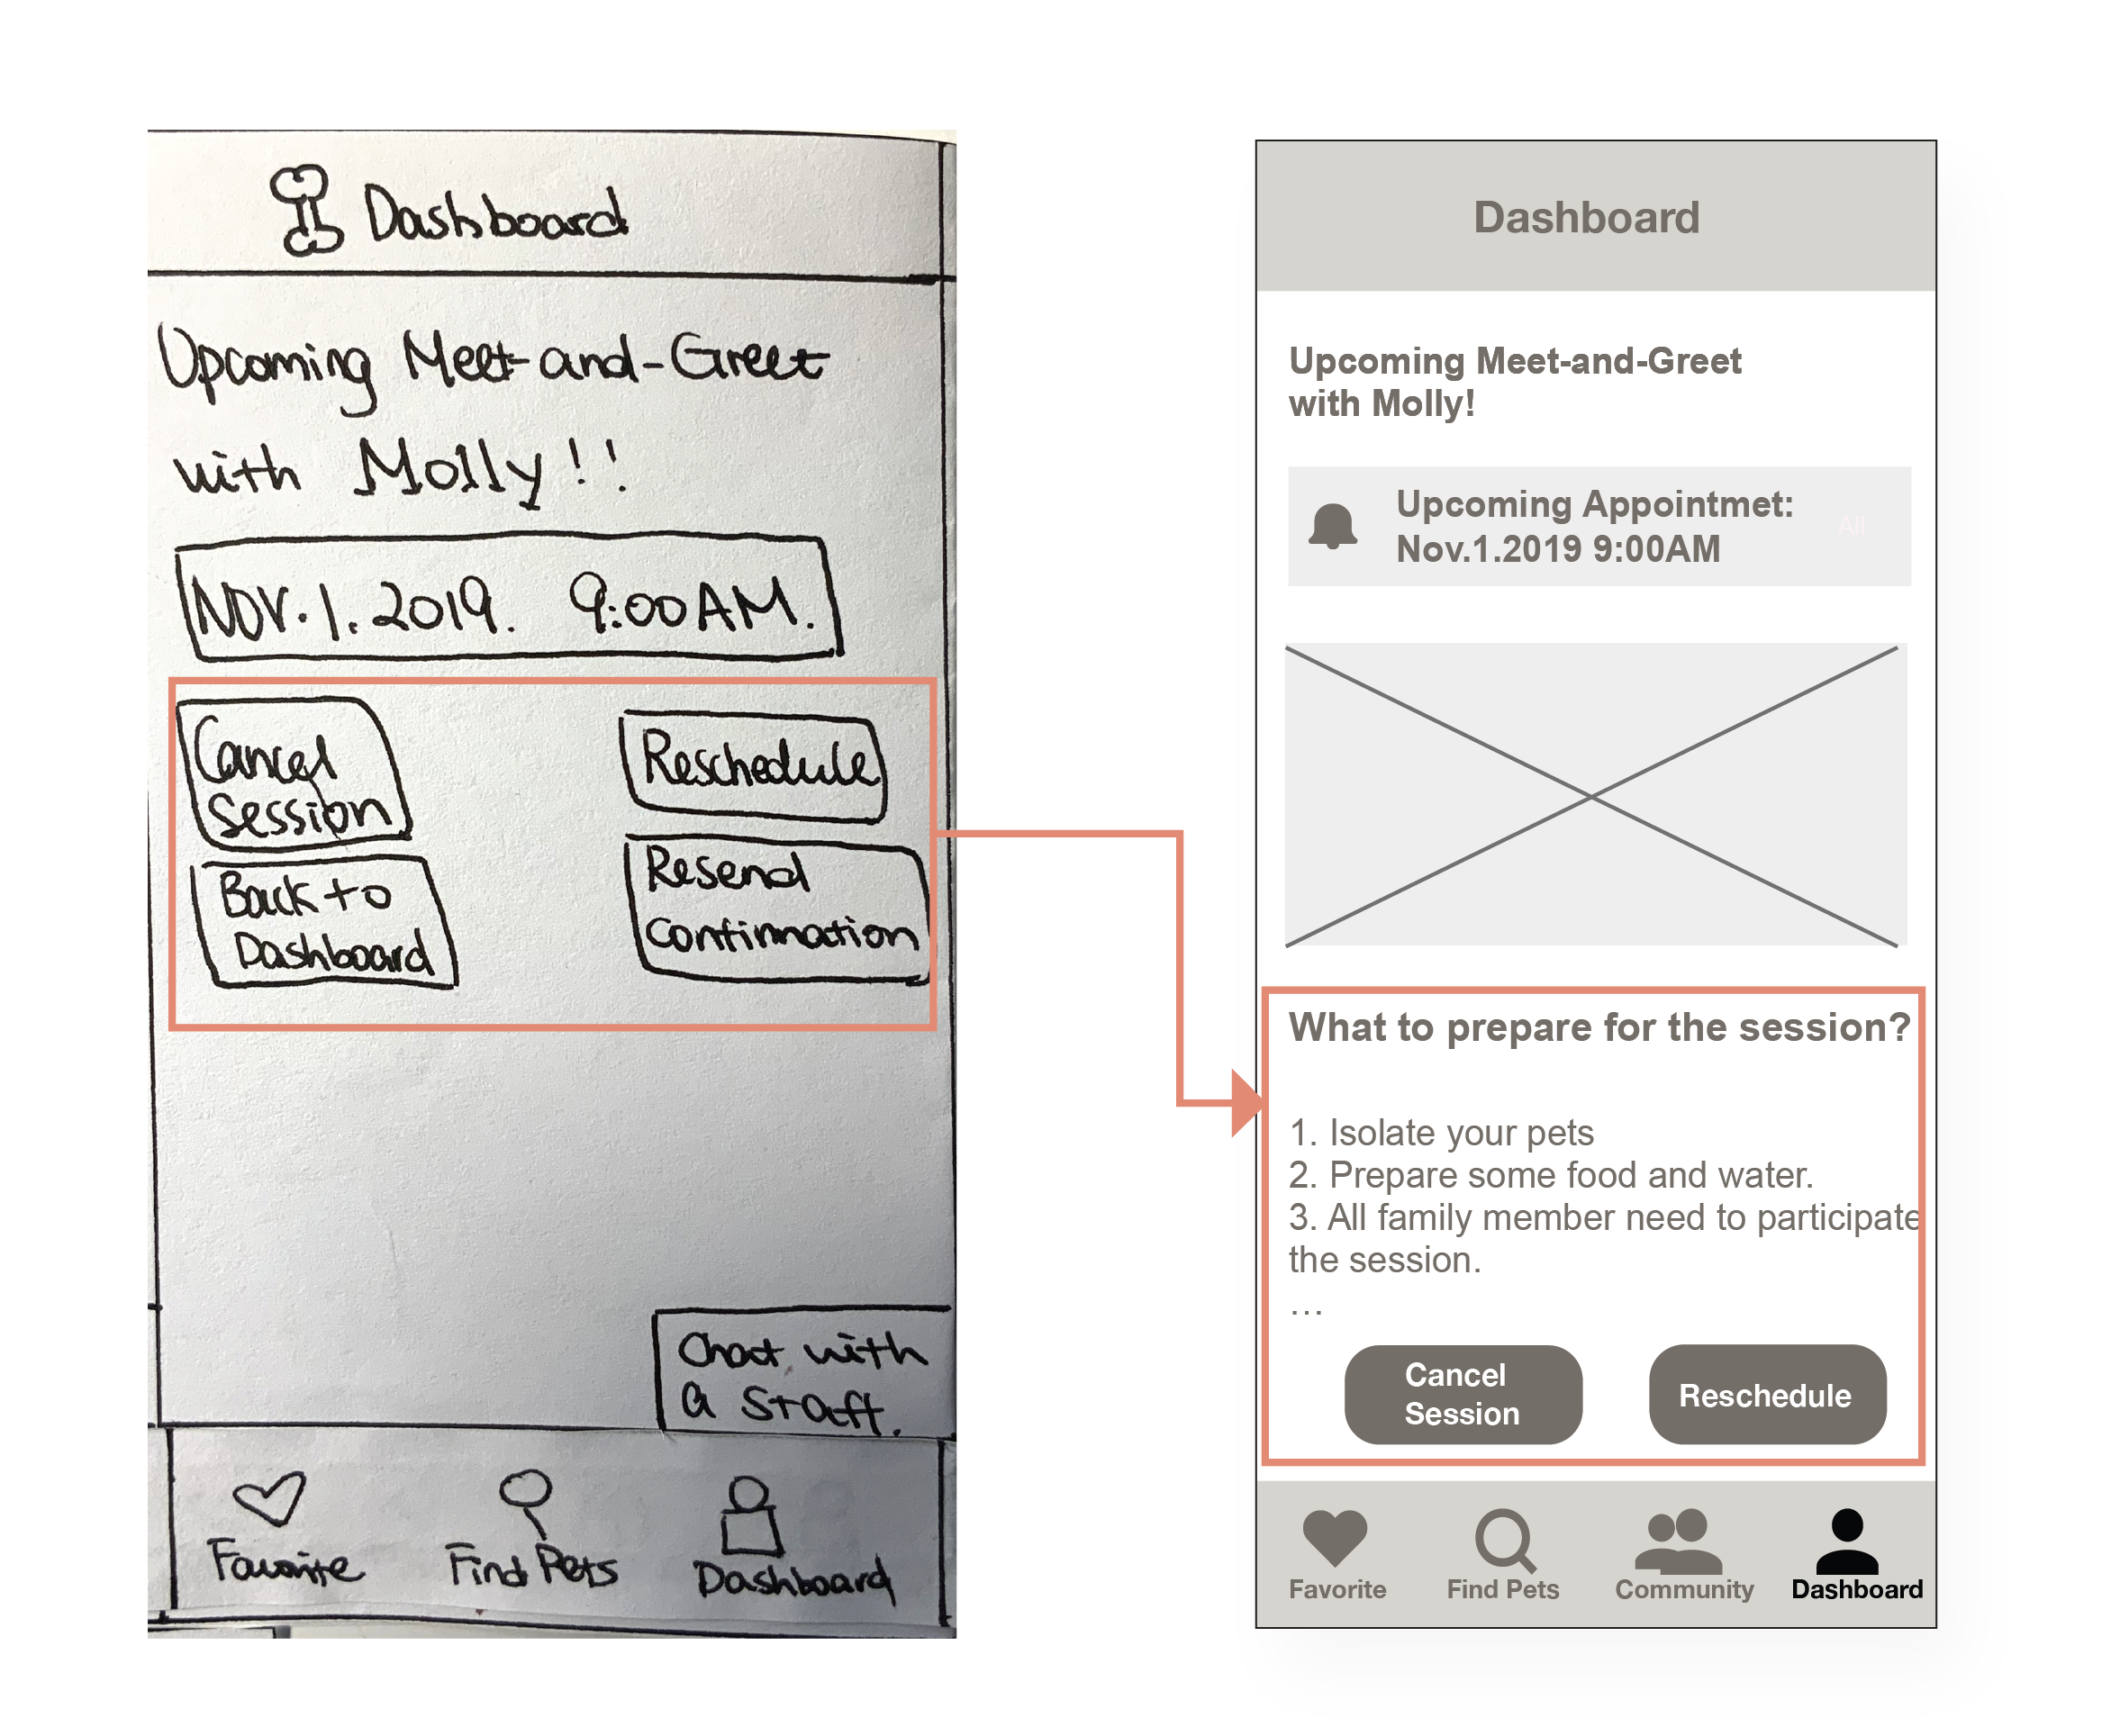 Dashboard
Upcoming Meet-and-Greet
with Molly!!
NOV.1.2019. 9:00AM.
Cancel
Session
Reschedule
Back to
Dashboard
Resend
Confirmation
Chat with
a staff.
Favorite
Find Pets
Dashboard
Dashboard
Upcoming Meet-and-Greet
with Molly!
Upcoming Appointmet:
Nov.1.2019 9:00AM
All
What to prepare for the session?
1. Isolate your pets
2. Prepare some food and water.
3. All family member need to participate
the session.
...
Cancel
Session
Reschedule
Favorite
Find Pets
Community
Dashboard